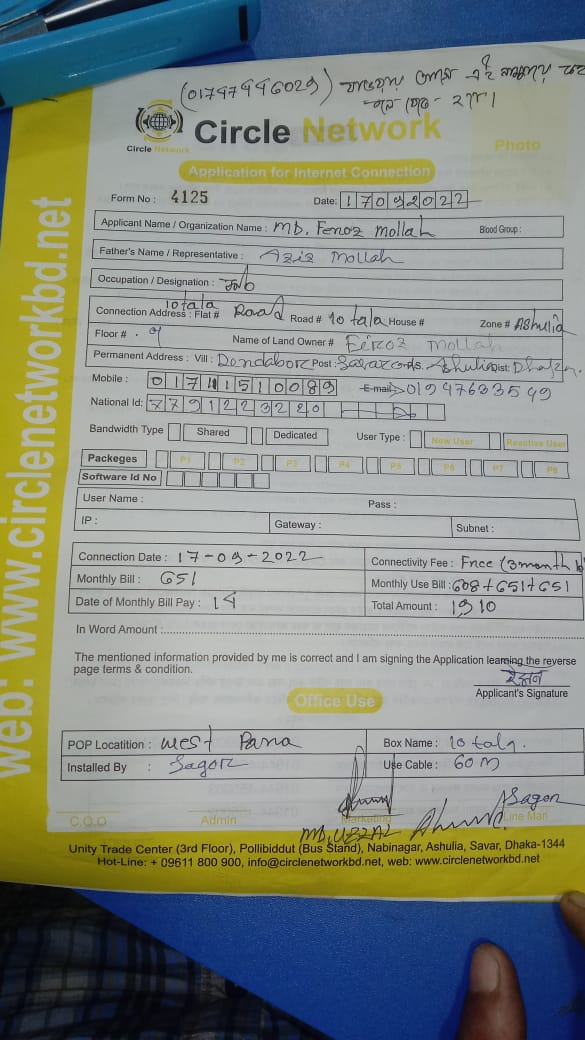 (01797996029)
Circle Network
Circle Network
Photo
Application for Internet Connection
Form No : 4125
Date: 17092022
Applicant Name / Organization Name : Mb. Feroz Mollah
Blood Group :
Father's Name / Representative : Aziz Mollah
Occupation / Designation :
Connection Address : Flat # 10 tala Road Road # 10 tala House # Zone # Ashulia
Floor # Name of Land Owner # Feroz Mollah
Permanent Address : Vill : Dendabor Post : Ashulia Dist: Dhaka.
Mobile : 01741510089 E-mail: 01947633549
National Id: 7791223220
Bandwidth Type Shared Dedicated User Type : New User Reactive User
Packeges P1 P2 P3 P4 P5 P6 P7 P8
Software Id No
User Name : Pass :
IP : Gateway : Subnet :
Connection Date : 17-09-2022 Connectivity Fee : Free (3month
Monthly Bill : 651 Monthly Use Bill : 608+651+651
Date of Monthly Bill Pay : 14 Total Amount : 1910
In Word Amount :
The mentioned information provided by me is correct and I am signing the Application learning the reverse
page terms & condition.
Applicant's Signature
Office Use
POP Locatition : West Para Box Name : 10 tala.
Installed By : Sagor Use Cable : 60 m
Sagor
C.O.O Admin Marketing Line Man
Mb, UZZAL
Unity Trade Center (3rd Floor), Pollibiddut (Bus Stand), Nabinagar, Ashulia, Savar, Dhaka-1344
Hot-Line: + 09611 800 900, info@circlenetworkbd.net, web: www.circlenetworkbd.net
web: www.circlenetworkbd.net